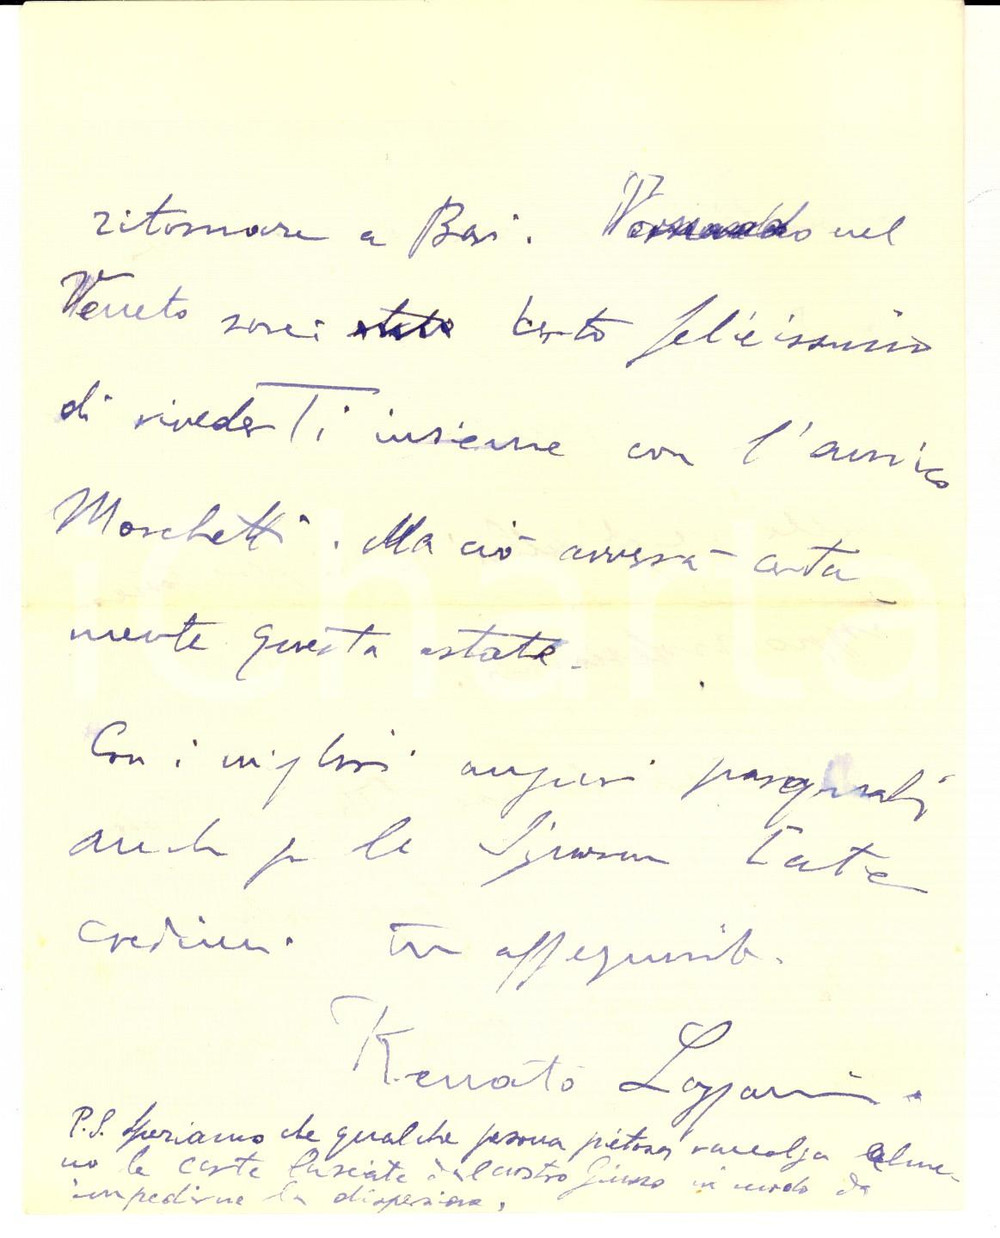 ritornare a Bari. Venendo nel
Veneto sarei certo felicissimo
di rivederTi insieme con l'amico
Moschetti. Ma ciò avverrà certa
mente questa estate.
Con i migliori auguri pasquali
anche per la Signora Tua e
credimi tuo
Renato Lazzarini.
P.S. Speriamo che qualche persona pietosa raccolga alme-
no le carte lasciate dal nostro Giusso in modo da
impedirne la dispersione.
iCharta